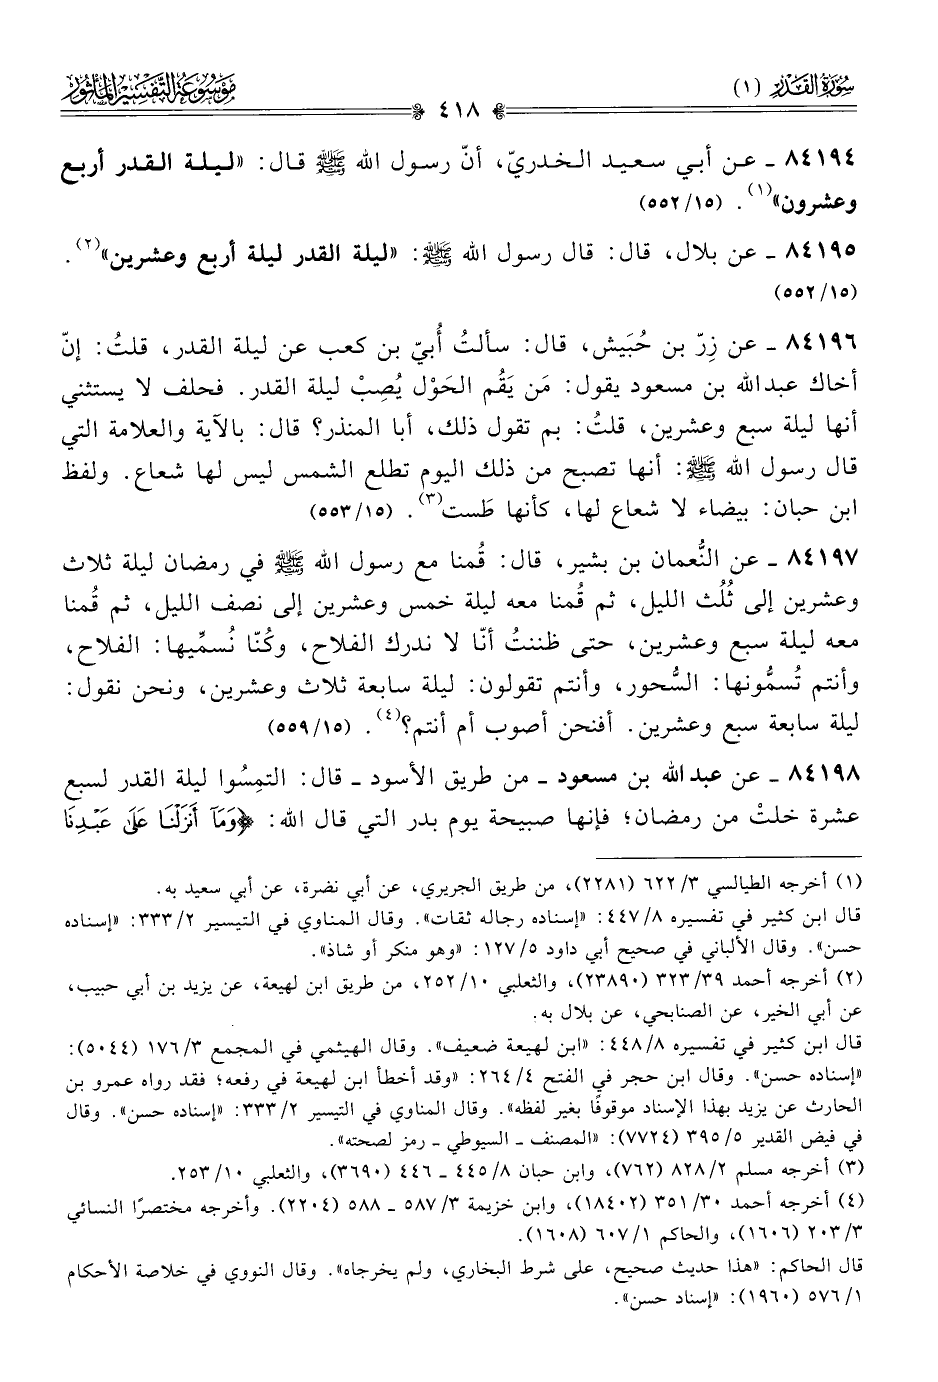 سُورَةُ القَدْرِ (١)
٤١٨
مَوْسُوعَة التَّفْسِيرِ المَأْثُور
٨٤١٩٤ ـ عن أبي سعيد الخدريّ، أنّ رسول الله ﷺ قال: «ليلة القدر أربع
وعشرون»(١). (١٥/٥٥٢)
٨٤١٩٥ ـ عن بلال، قال: قال رسول الله ﷺ: «ليلة القدر ليلة أربع وعشرين»(٢).
(١٥/٥٥٢)
٨٤١٩٦ ـ عن زِرّ بن حُبَيش، قال: سألتُ أُبيّ بن كعب عن ليلة القدر، قلتُ: إنّ
أخاك عبدالله بن مسعود يقول: مَن يَقُم الحَوْل يُصِبْ ليلة القدر. فحلف لا يستثني
أنها ليلة سبع وعشرين، قلتُ: بم تقول ذلك، أبا المنذر؟ قال: بالآية والعلامة التي
قال رسول الله ﷺ: أنها تصبح من ذلك اليوم تطلع الشمس ليس لها شعاع. ولفظ
ابن حبان: بيضاء لا شعاع لها، كأنها طَست(٣). (١٥/٥٥٣)
٨٤١٩٧ ـ عن النُّعمان بن بشير، قال: قُمنا مع رسول الله ﷺ في رمضان ليلة ثلاث
وعشرين إلى ثُلُث الليل، ثم قُمنا معه ليلة خمس وعشرين إلى نصف الليل، ثم قُمنا
معه ليلة سبع وعشرين، حتى ظننتُ أنّا لا ندرك الفلاح، وكُنّا نُسمِّيها: الفلاح،
وأنتم تُسمُّونها: السُّحور، وأنتم تقولون: ليلة سابعة ثلاث وعشرين، ونحن نقول:
ليلة سابعة سبع وعشرين. أفنحن أصوب أم أنتم؟(٤). (١٥/٥٥٩)
٨٤١٩٨ ـ عن عبدالله بن مسعود ـ من طريق الأسود ـ قال: التمِسُوا ليلة القدر لسبع
عشرة خلتْ من رمضان؛ فإنها صبيحة يوم بدر التي قال الله: ﴿وَمَآ أَنزَلْنَا عَلَىٰ عَبْدِنَا
(١) أخرجه الطيالسي ٣/ ٦٢٢ (٢٢٨١)، من طريق الجريري، عن أبي نضرة، عن أبي سعيد به.
قال ابن كثير في تفسيره ٨/ ٤٤٧: «إسناده رجاله ثقات». وقال المناوي في التيسير ٢/ ٣٣٣: «إسناده
حسن». وقال الألباني في صحيح أبي داود ٥/ ١٢٧: «وهو منكر أو شاذ».
(٢) أخرجه أحمد ٣٩/ ٣٢٣ (٢٣٨٩٠)، والثعلبي ١٠/ ٢٥٢، من طريق ابن لهيعة، عن يزيد بن أبي حبيب،
عن أبي الخير، عن الصنابحي، عن بلال به.
قال ابن كثير في تفسيره ٨/ ٤٤٨: «ابن لهيعة ضعيف». وقال الهيثمي في المجمع ٣/ ١٧٦ (٥٠٤٤):
«إسناده حسن». وقال ابن حجر في الفتح ٤/ ٢٦٤: «وقد أخطأ ابن لهيعة في رفعه؛ فقد رواه عمرو بن
الحارث عن يزيد بهذا الإسناد موقوفًا بغير لفظه». وقال المناوي في التيسير ٢/ ٣٣٣: «إسناده حسن». وقال
في فيض القدير ٥/ ٣٩٥ (٧٧٢٤): «المصنف ـ السيوطي ـ رمز لصحته».
(٣) أخرجه مسلم ٢/ ٨٢٨ (٧٦٢)، وابن حبان ٨/ ٤٤٥ ـ ٤٤٦ (٣٦٩٠)، والثعلبي ١٠/ ٢٥٣.
(٤) أخرجه أحمد ٣٠/ ٣٥١ (١٨٤٠٢)، وابن خزيمة ٣/ ٥٨٧ ـ ٥٨٨ (٢٢٠٤). وأخرجه مختصرًا النسائي
٣/ ٢٠٣ (١٦٠٦)، والحاكم ١/ ٦٠٧ (١٦٠٨).
قال الحاكم: «هذا حديث صحيح، على شرط البخاري، ولم يخرجاه». وقال النووي في خلاصة الأحكام
١/ ٥٧٦ (١٩٦٠): «إسناد حسن».